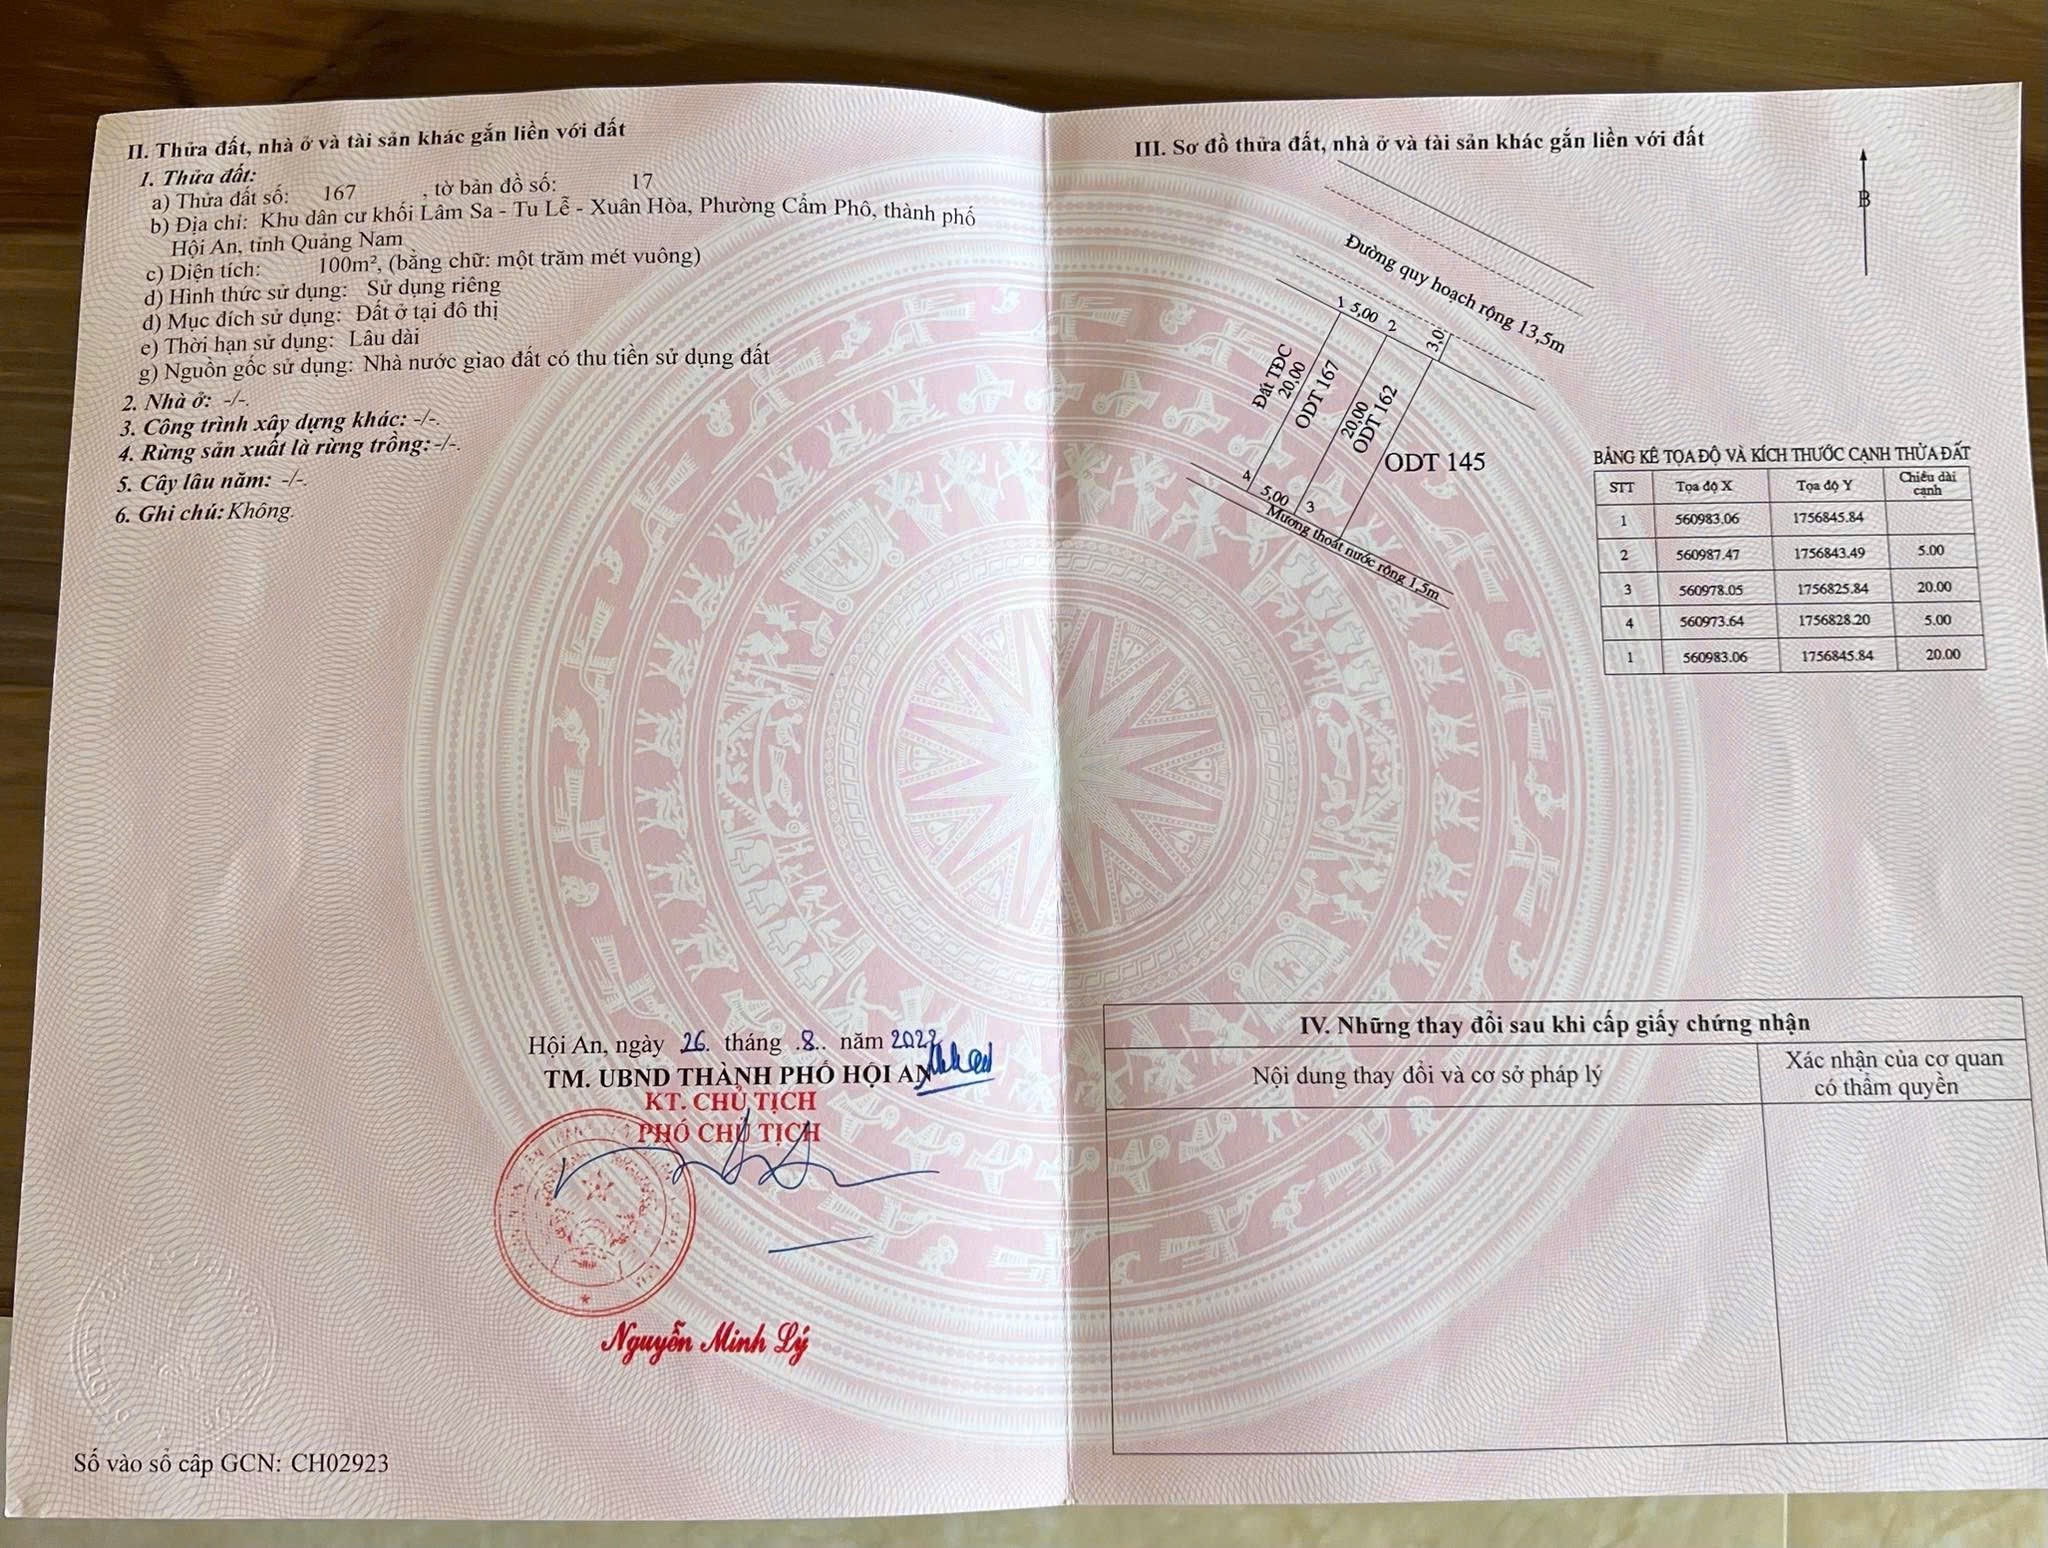 II. Thửa đất, nhà ở và tài sản khác gắn liền với đất
1. Thửa đất:
a) Thửa đất số: 167 , tờ bản đồ số: 17
b) Địa chỉ: Khu dân cư khối Lâm Sa - Tu Lễ - Xuân Hòa, Phường Cẩm Phô, thành phố
Hội An, tỉnh Quảng Nam
c) Diện tích: 100m², (bằng chữ: một trăm mét vuông)
d) Hình thức sử dụng: Sử dụng riêng
đ) Mục đích sử dụng: Đất ở tại đô thị
e) Thời hạn sử dụng: Lâu dài
g) Nguồn gốc sử dụng: Nhà nước giao đất có thu tiền sử dụng đất
2. Nhà ở: -/-.
3. Công trình xây dựng khác: -/-.
4. Rừng sản xuất là rừng trồng: -/-.
5. Cây lâu năm: -/-.
6. Ghi chú: Không.
Hội An, ngày 26. tháng .8.. năm 2022
TM. UBND THÀNH PHỐ HỘI AN
KT. CHỦ TỊCH
PHÓ CHỦ TỊCH
Nguyễn Minh Lý
Số vào sổ cấp GCN: CH02923
III. Sơ đồ thửa đất, nhà ở và tài sản khác gắn liền với đất
B
Đường quy hoạch rộng 13,5m
1 5,00 2
3,0
Đất TĐC
20,00
ODT 167
20,00
ODT 162
ODT 145
4 5,00 3
Mương thoát nước rộng 1,5m
BẢNG KÊ TỌA ĐỘ VÀ KÍCH THƯỚC CẠNH THỬA ĐẤT
STT Tọa độ X Tọa độ Y Chiều dài
cạnh
1 560983.06 1756845.84
2 560987.47 1756843.49 5.00
3 560978.05 1756825.84 20.00
4 560973.64 1756828.20 5.00
1 560983.06 1756845.84 20.00
IV. Những thay đổi sau khi cấp giấy chứng nhận
Nội dung thay đổi và cơ sở pháp lý
Xác nhận của cơ quan
có thẩm quyền